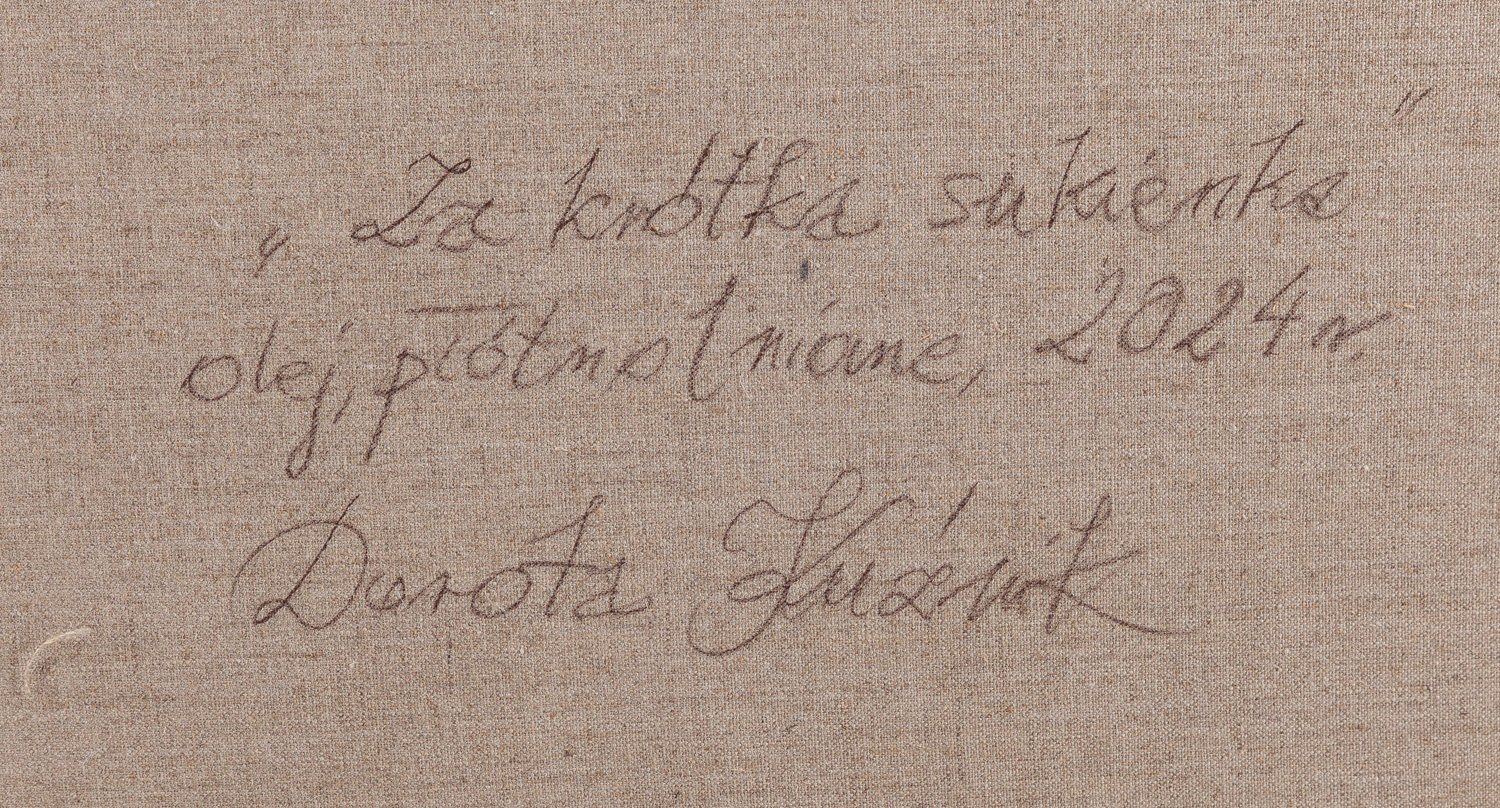 „Za krótka sukienka"
olej, płótno lniane, 2024 r.
Dorota Kuźnik